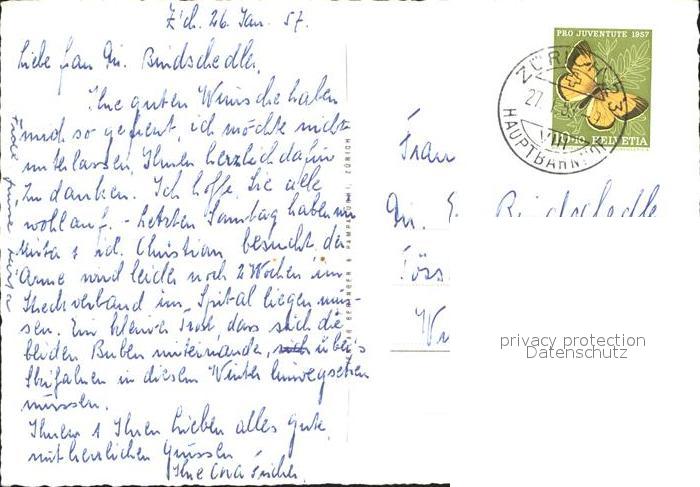 Z'ch. 26. Jan. 57.
Liebe Frau Dr. Bindschedler,
Ihre guten Wünsche haben
mich so gefreut, ich möchte nicht
unterlassen, Ihnen herzlich dafür
zu danken. Ich hoffe, Sie alle
wohlauf. - Letzten Samstag haben wir
& id. Christian besucht, der
Arme wird leider noch 2 Wochen im
Streckverband im Spital liegen müs-
sen. Ein kleiner Trost, dass sich die
beiden Buben miteinander, über's
Skifahren in diesem Winter hinwegsetzen
müssen.
Ihnen & Ihren Lieben alles Gute
mit herzlichen Grüssen
Ihre
PRO JUVENTUTE 1957
HELVETIA
ZÜRICH 23
27. I.
VIII
HAUPTBAHNHOF
Frau
Dr. Bindschedle
Töss
Wi
privacy protection
Datenschutz